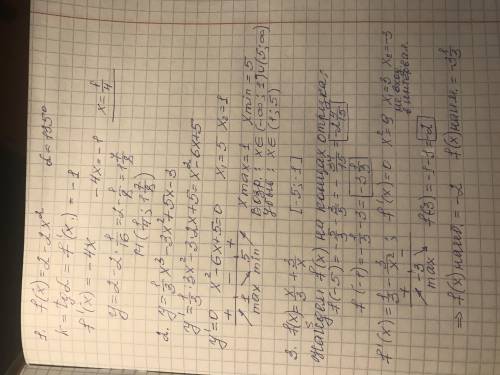 1. f(x) = 2 - 2x² α = 135°
k = tg α = f'(x₀) = -1
f'(x) = -4x -4x = -1 x = 1/4
y = 2 - 2·1/16 = 2 - 1/8 = 1 7/8
M(1/4; 1 7/8)
2. y = 1/3 x³ - 3x² + 5x - 3
y' = 1/3·3x² - 3·2x + 5 = x² - 6x + 5
y' = 0 x² - 6x + 5 = 0 x₁ = 5 x₂ = 1
+ - +
1 5
max min
xmax = 1 xmin = 5
возр: x∈(-∞; 1)∪(5; ∞)
убыв: x∈(1; 5)
3. f(x) = x/3 + 3/x [-5; -1]
Найдём f(x) на концах отрезка
f(-5) = -5/3 - 3/5 = = -2 4/15
f(-1) = -1/3 - 3 = -3 1/3
f'(x) = 1/3 - 3/x²; f'(x) = 0 x² = 9 x = 3 x₂ = -3
не вход. в интервал
+ -
-3
max
f(-3) = -1 - 1 = -2
⇒ f(x) наиб. = -2 f(x) наим. = -3 1/3